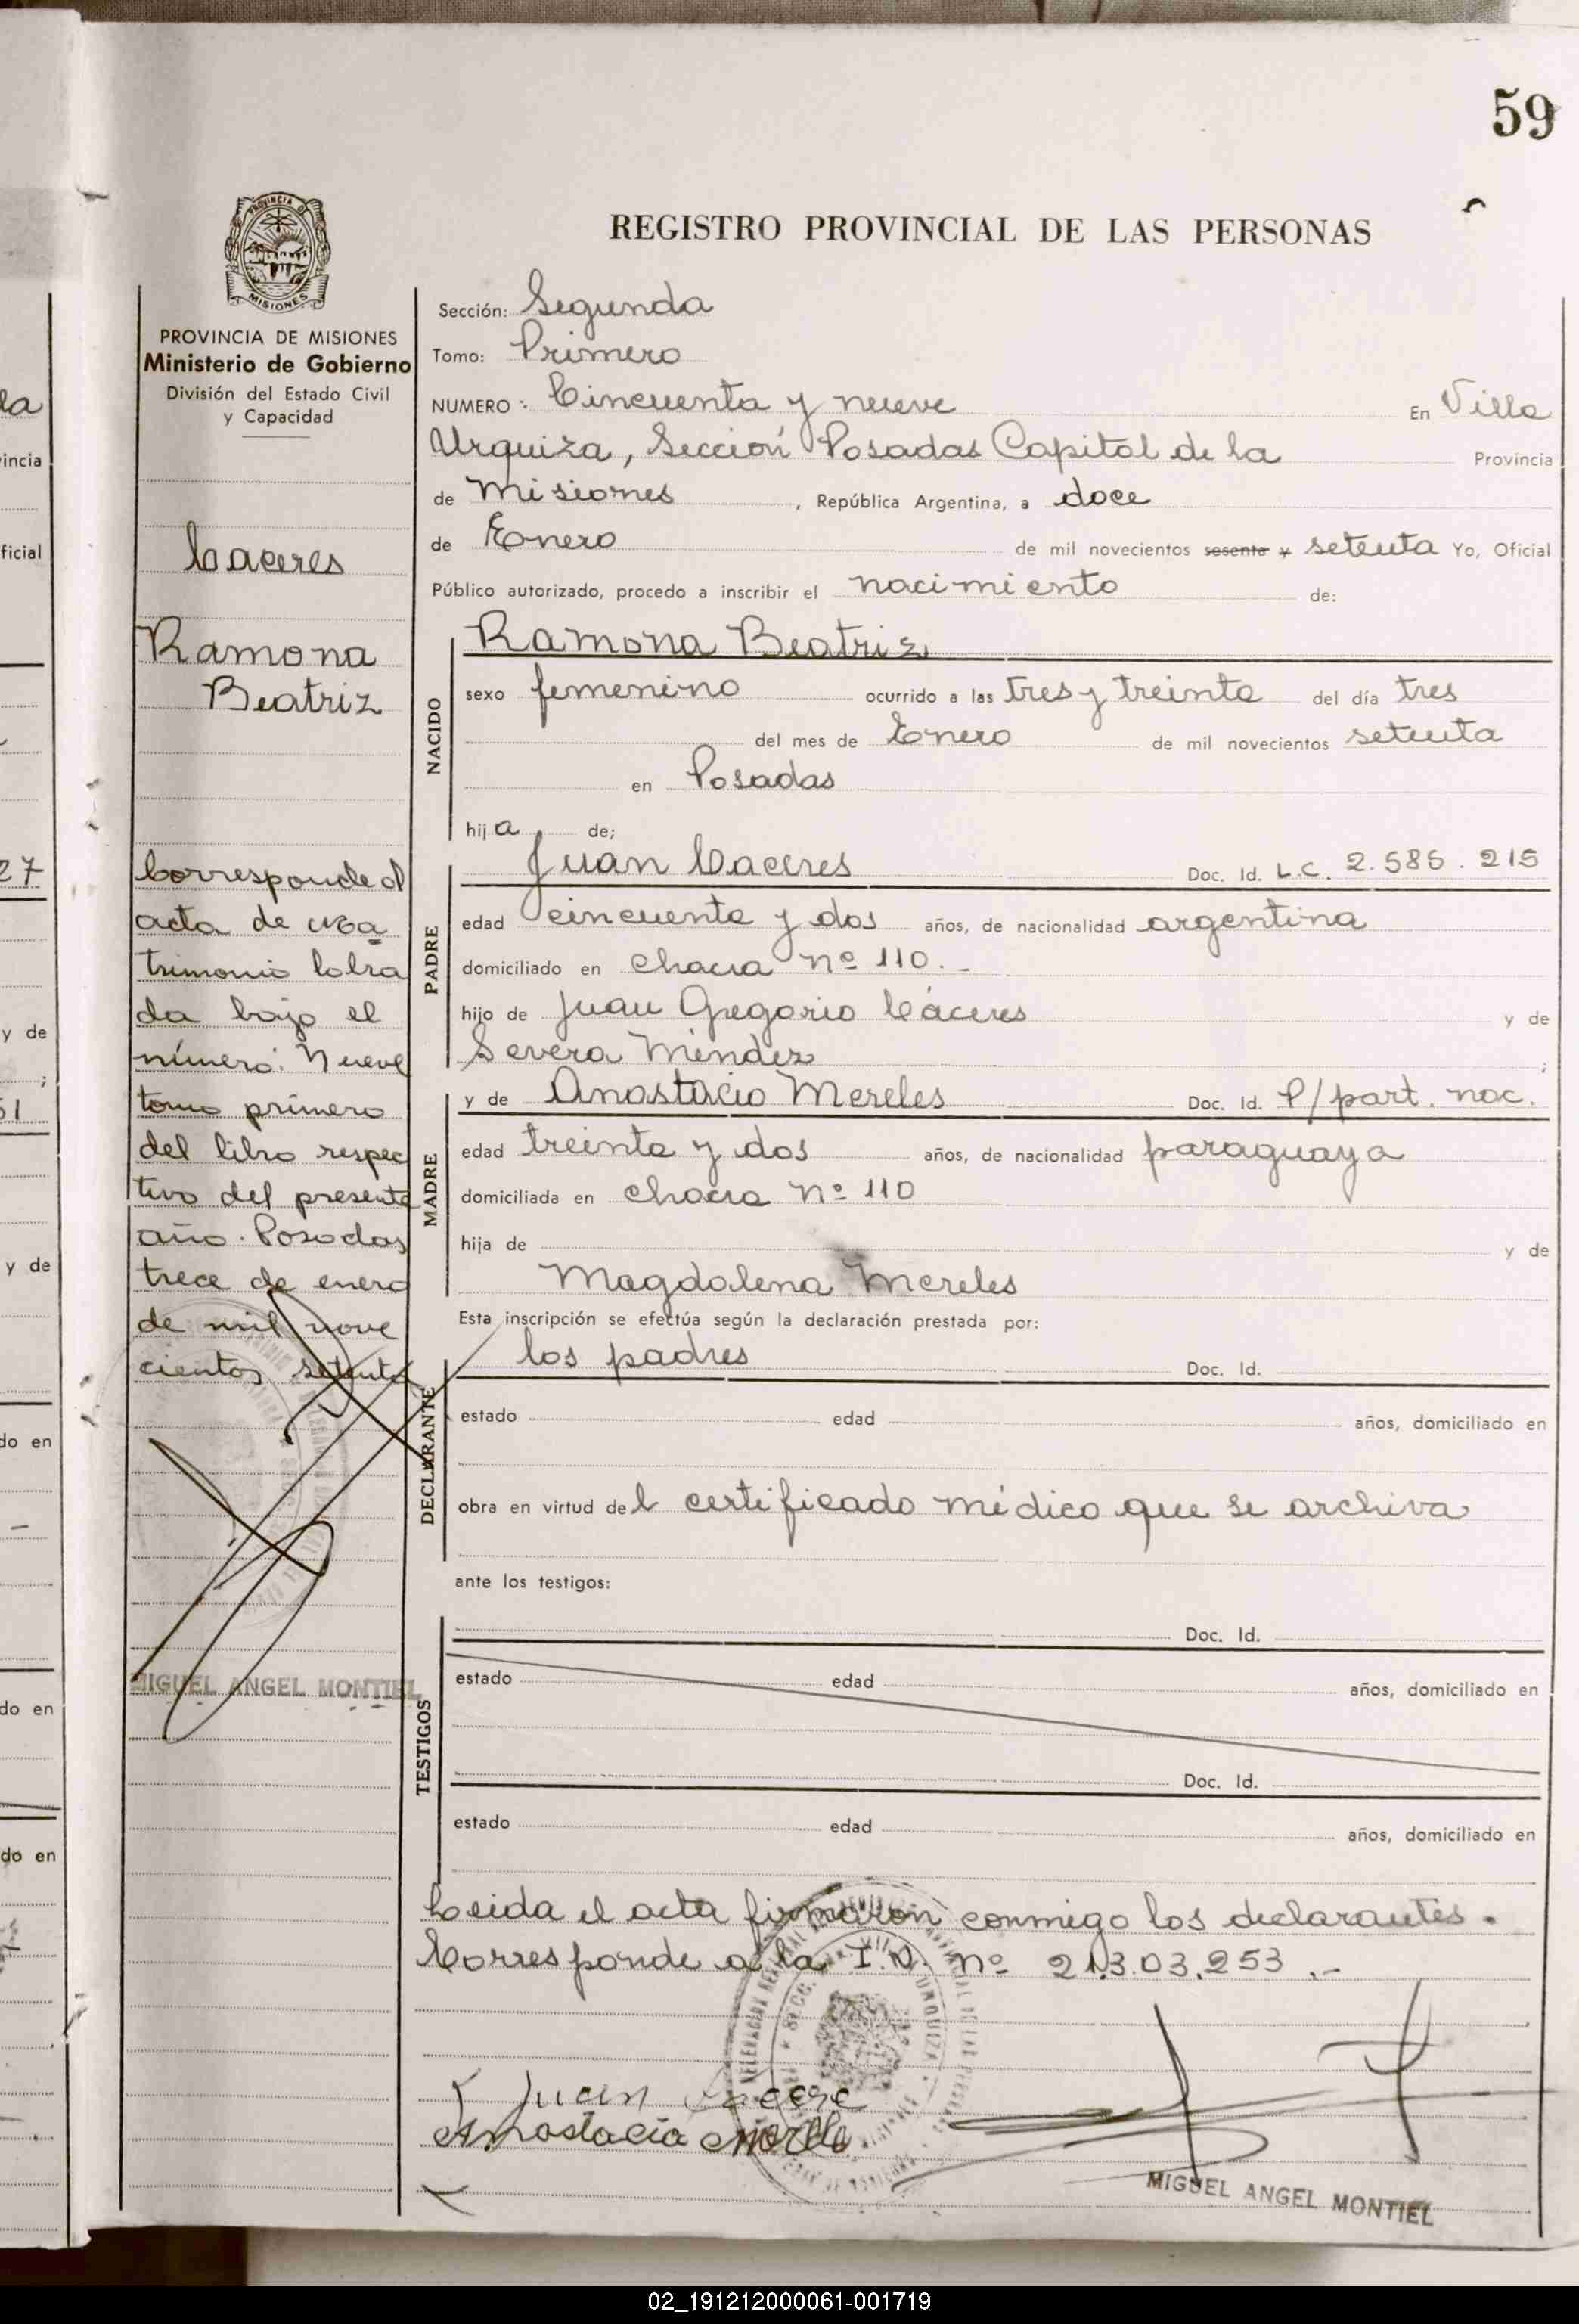 59
REGISTRO PROVINCIAL DE LAS PERSONAS
PROVINCIA DE MISIONES
Ministerio de Gobierno
División del Estado Civil
y Capacidad
Caceres
Ramona
Beatriz
Corresponde al
acta de Ma
trimonio labra
da bajo el
número: Nueve
tomo primero
del libro respec
tivo del presente
año. Posadas
trece de enero
de mil nove
cientos setenta
MIGUEL ANGEL MONTIEL
Sección: Segunda
Tomo: Primero
NUMERO: Cincuenta y nueve En Villa
Urquiza, Sección Posadas Capital de la Provincia
de Misiones, República Argentina, a doce
de Enero de mil novecientos sesenta y setenta Yo, Oficial
Público autorizado, procedo a inscribir el nacimiento de:
NACIDO
Ramona Beatriz
sexo femenino ocurrido a las tres y treinta del día tres
del mes de Enero de mil novecientos setenta
en Posadas
hija de;
PADRE
Juan Caceres Doc. Id. L.C. 2.585.215
edad cincuenta y dos años, de nacionalidad argentina
domiciliado en chacra nº 110.-
hijo de Juan Gregorio Cáceres y de
Severa Mendez ;
MADRE
y de Anastacia Mereles Doc. Id. P/part. nac.
edad treinta y dos años, de nacionalidad paraguaya
domiciliada en chacra nº 110
hija de y de
Magdalena Mereles
Esta inscripción se efectúa según la declaración prestada por:
DECLARANTE
los padres Doc. Id.
estado edad años, domiciliado en
obra en virtud del certificado médico que se archiva
ante los testigos:
TESTIGOS
Doc. Id.
estado edad años, domiciliado en
Doc. Id.
estado edad años, domiciliado en
Leida el acta firmaron conmigo los declarantes.
Corresponde a la I.D. nº 21.303.253.-
Juan Cacere
Anastacia Merele
MIGUEL ANGEL MONTIEL
02_191212000061-001719